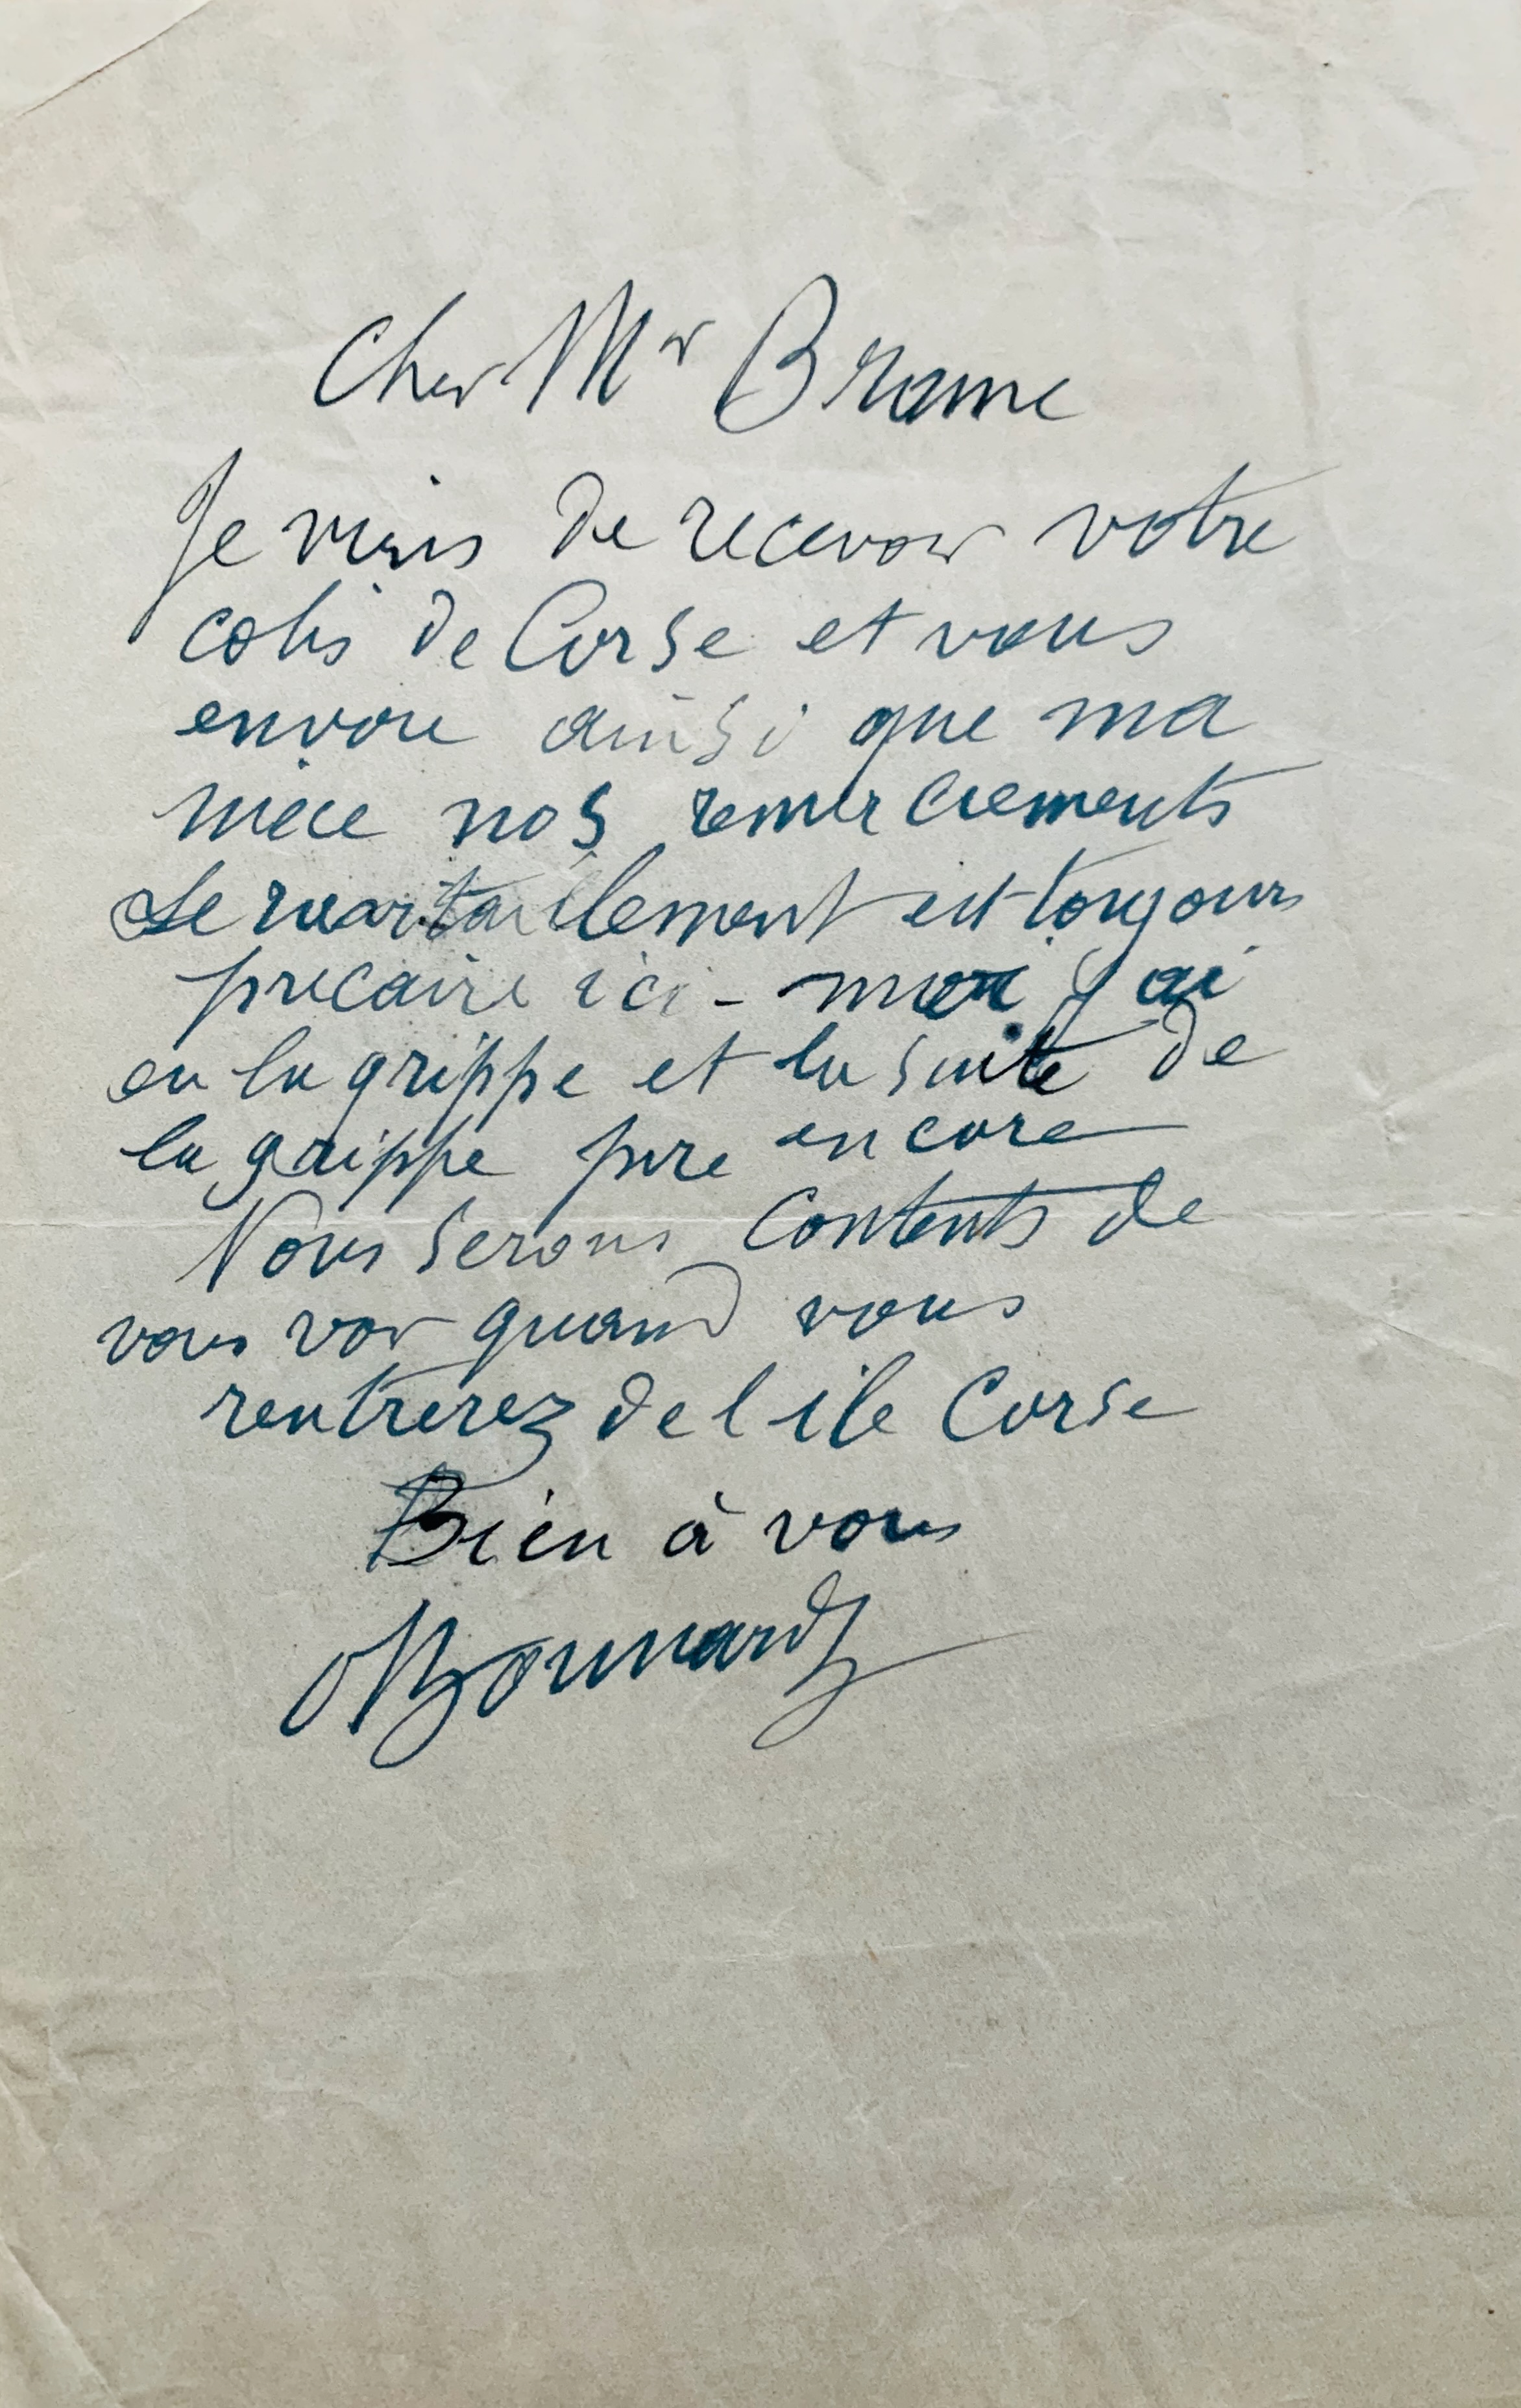 Cher Mr Brame
Je viens de recevoir votre
colis de Corse et vous
envoie ainsi que ma
nièce nos remerciements
Le ravitaillement est toujours
precaire ici - moi j'ai
eu la grippe et la suite de
la grippe pire encore
Nous serons contents de
vous voir quand vous
rentrerez de l ile Corse
Bien à vous
PBonnard